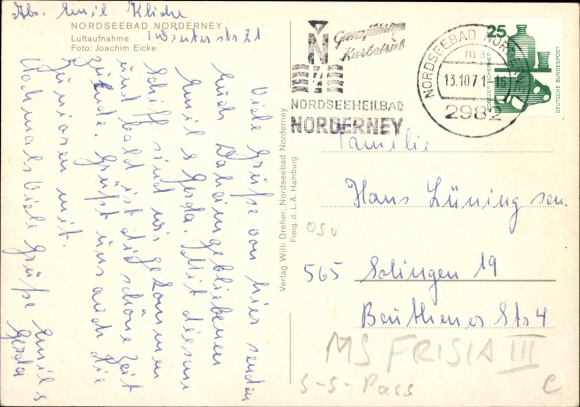 Abs. Emil Kliche
NORDSEEBAD NORDERNEY
Winterstr 21
Luftaufnahme
Foto: Joachim Eicke
Viele Grüße von hier senden
Euch Daheimgebliebenen
Emil & Gerda. Mit diesem
Schiff sind wir gekommen
und bald ist die schöne Zeit
zu Ende. Grüßt uns auch die
Junioren mit.
Nochmals Viele Grüße Emil &
Gerda
Verlag Willi Dreher, Nordseebad Norderney
Freig. d. L.A. Hamburg
N
Ganzjähriger
Kurbetrieb
NORDSEEHEILBAD
NORDERNEY
NORDSEEBAD NORDERNEY
13.10.71-16
2982
25
DEUTSCHE BUNDESPOST
Familie
Hans Lüning sen.
565 Solingen 19
Beuthener Str 4
MS FRISIA III
S-S-Pass
C